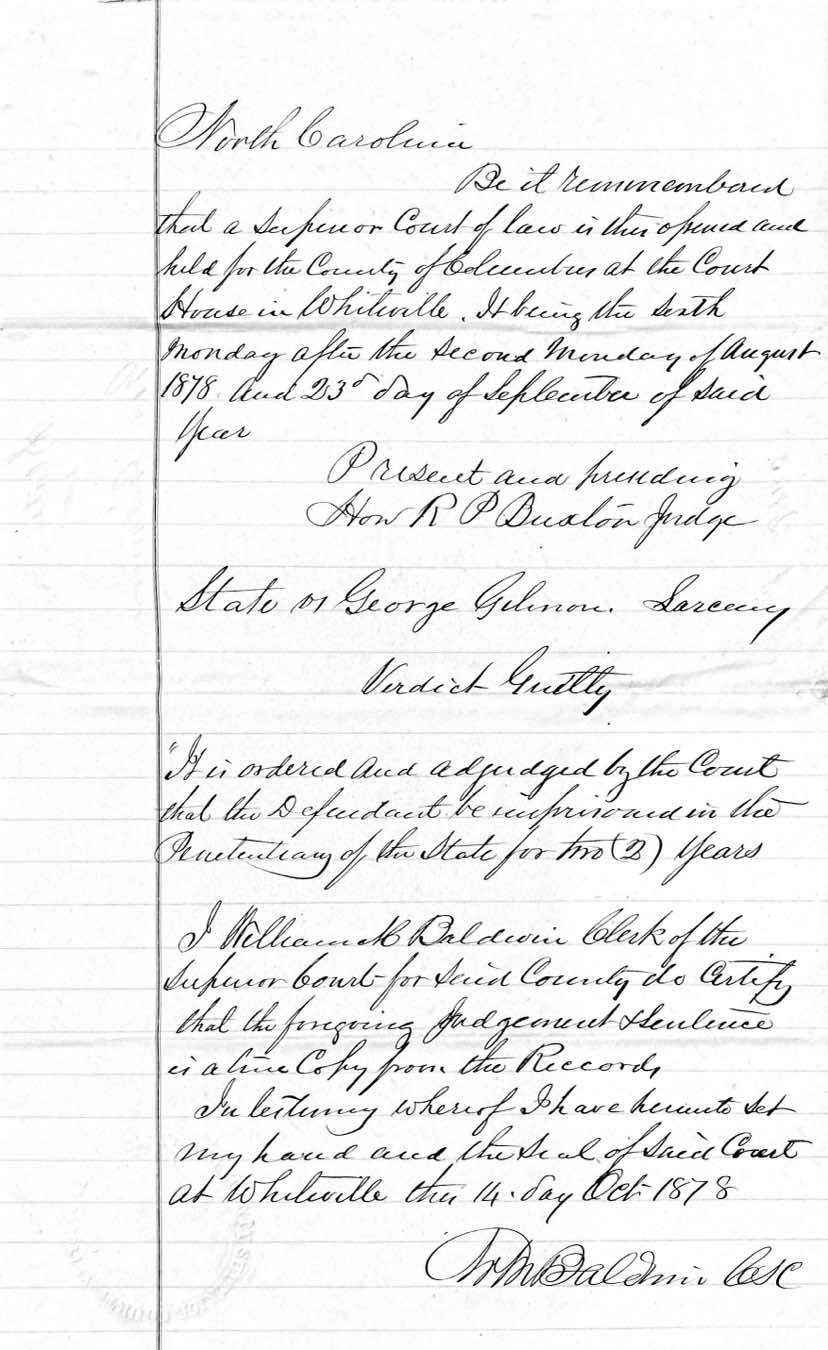 North Carolina
Be it remmembered
that a Superior Court of law is this opened and
held for the County of Columbus at the Court
House in Whiteville. It being the sixth
Monday after the second Monday of August
1878 and 23d day of September of said
Year
Present and presiding
Hon R P Buxton Judge
State vs George Gilmon. Larceny
Verdict Guilty
"It is ordered and adjudged by the Court
that the Defendant be imprisoned in the
Penetentiary of the State for two (2) Years
I William M Baldwin Clerk of the
Superior Court for said County do Certify
that the foregoing Judgement & Sentence
is a true Copy from the Reccords
In testimony whereof I have hereunto set
my hand and the seal of said Court
at Whiteville this 14. day Oct 1878
W M Baldwin CSC